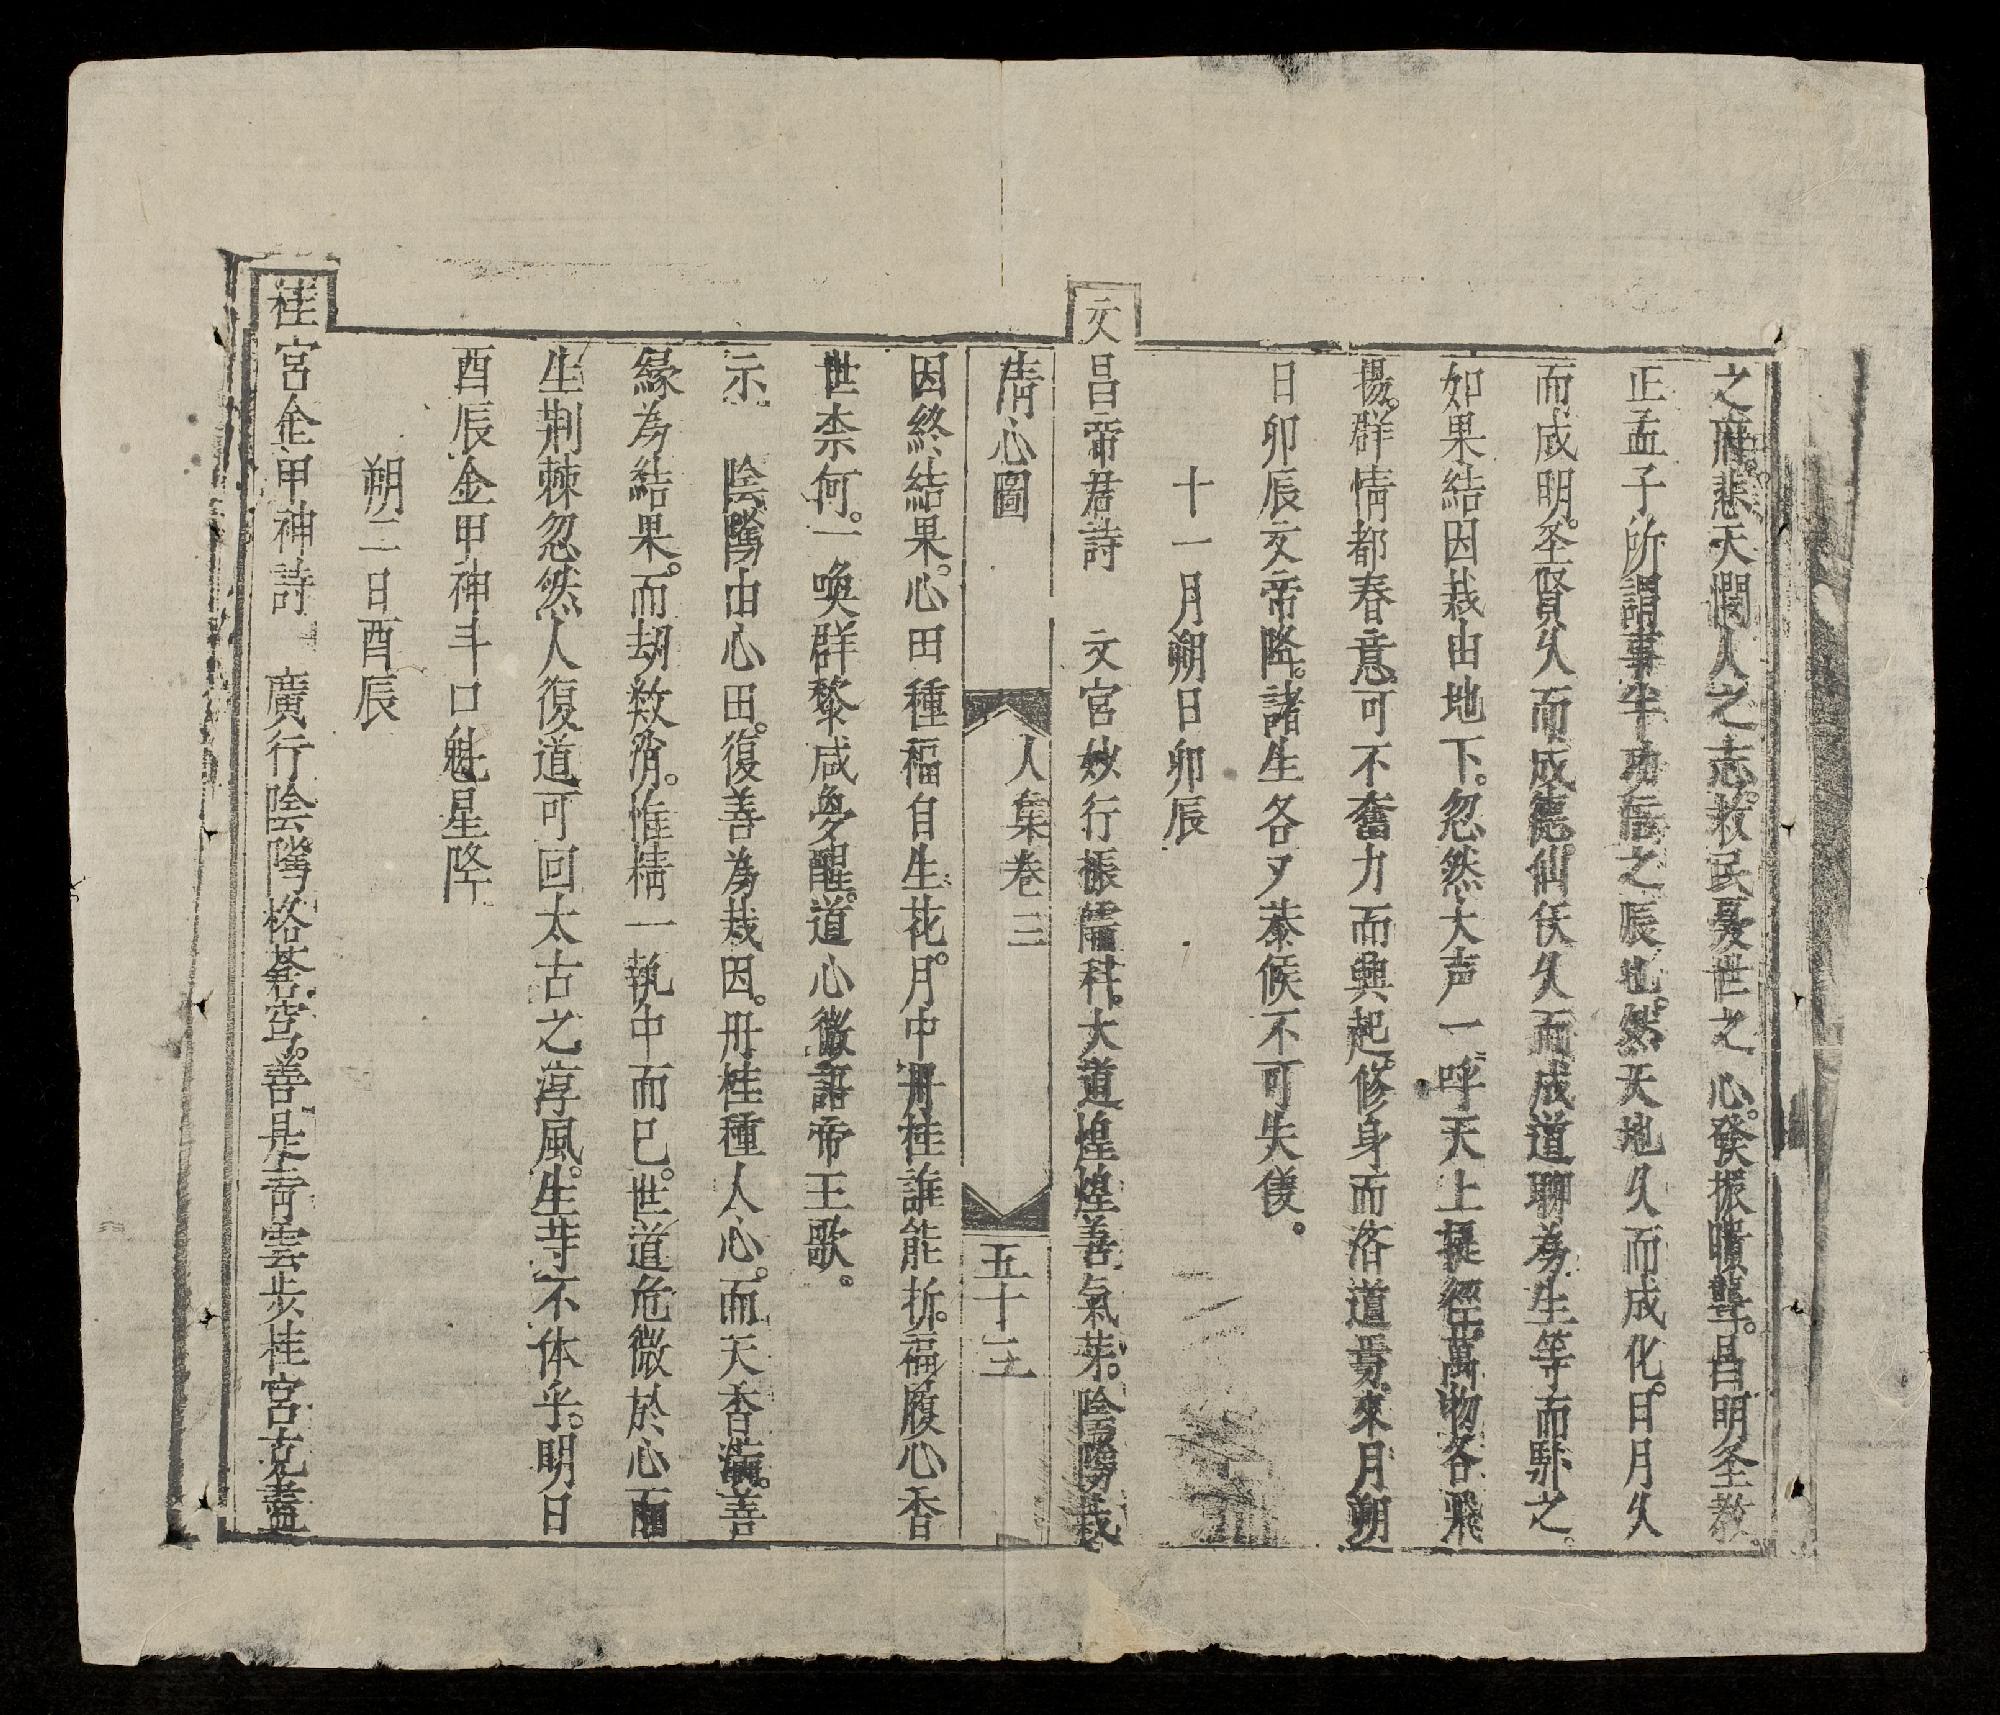 之府悲天憫人之志救民憂世之心。發振聵聾。昌明圣教。
正孟子所謂事半功倍之辰也。然天地久而成化。日月久
而成明。圣賢久而成德。仙伕久而成道。聊為生等而馸之。
如果結因栽由地下。忽然大声一呼天上提經。萬物各飛
揚。群情都春意。可不奮力而興起。修身而洛道焉。來月朔
日卯辰文帝降。諸生各夕恭候不可失儀。
十一月朔日卯辰
文昌帝君詩　文宮妙行振儒科。大道煌煌善氣葉。陰隲栽
清心圖　人集卷三　五十三
因終結果。心田種福自生花。月中丹桂誰能折。福履心香
世柰何。一喚群黎咸夢醒。道心微語帝王歌。
示　陰隲由心田。復善為栽因。丹桂種人心。而天香滿。善
緣為結果。而刼数消。惟精一執中而已。世道危微於心靣
生荆棘忽然人復道可回太古之淳風。生等不体乎。明日
酉辰金甲神斗口魁星降
朔二日酉辰
桂宮金甲神詩　廣行陰隲格蒼穹。善是青雲步桂宮克盡